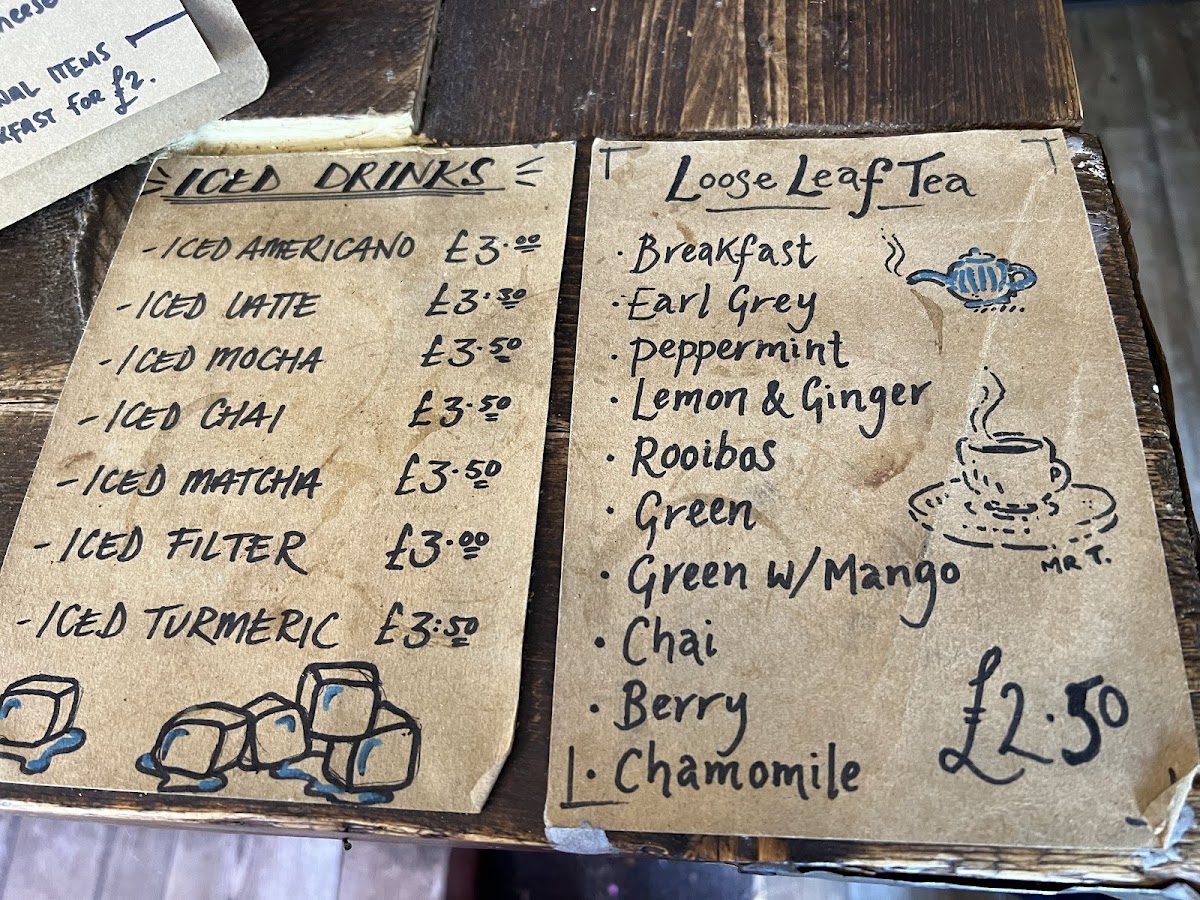 heese
NAL ITEMS
KFAST FOR £2.
ICED DRINKS
- ICED AMERICANO £3.00
- ICED LATTE £3.50
- ICED MOCHA £3.50
- ICED CHAI £3.50
- ICED MATCHA £3.50
- ICED FILTER £3.00
- ICED TURMERIC £3.50
Loose Leaf Tea
· Breakfast
· Earl Grey
· peppermint
· Lemon & Ginger
· Rooibos
· Green
· Green w/Mango
· Chai
· Berry
· Chamomile
MR T.
£2.50